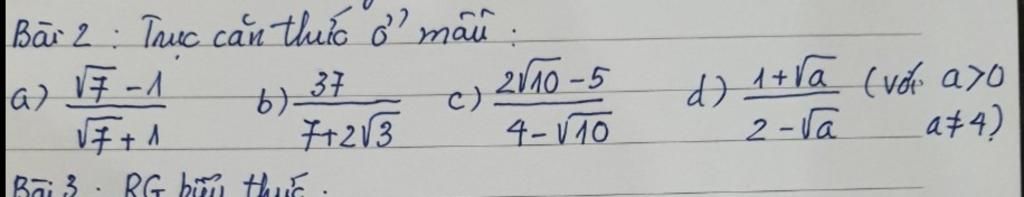 Bài 2 : Trục căn thức ở mẫu :
a) \frac{\sqrt{7} - 1}{\sqrt{7} + 1} b) \frac{37}{7 + 2\sqrt{3}} c) \frac{2\sqrt{10} - 5}{4 - \sqrt{10}} d) \frac{1 + \sqrt{a}}{2 - \sqrt{a}} (với a > 0 a ≠ 4)
Bài 3 . RG biểu thức .